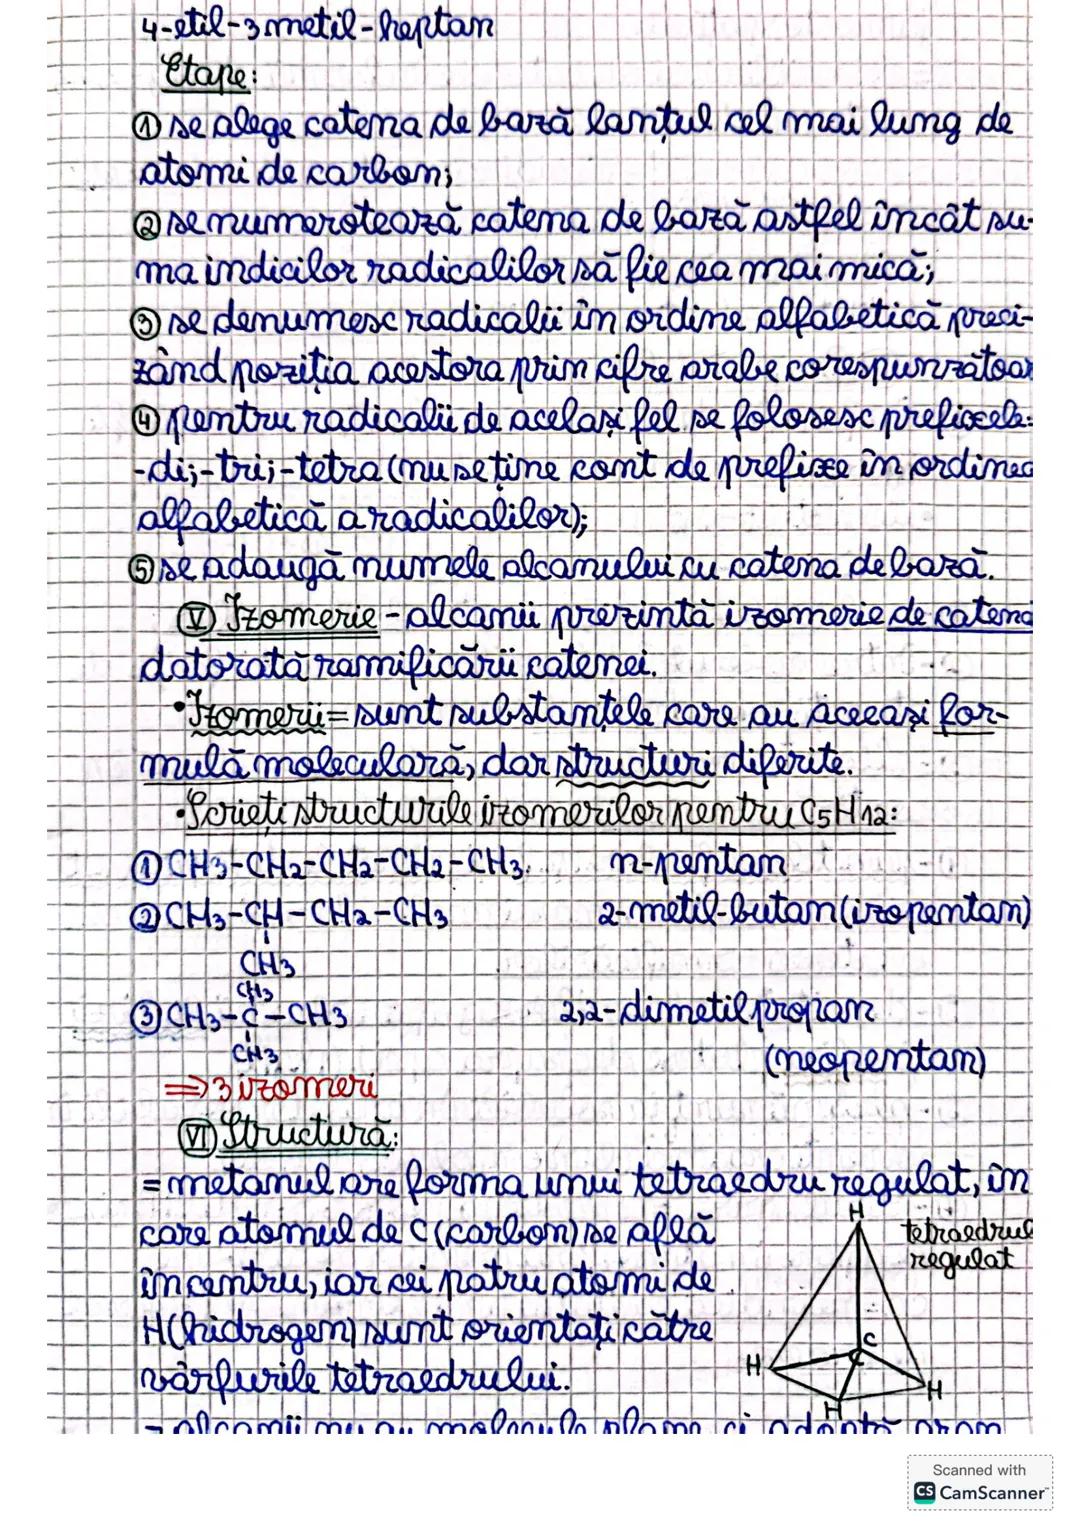 4-etil-3metil-heptan
Etape:
① se alege catena de bază lanțul cel mai lung de
atomi de carbon;
② se numerotează catena de bază astfel încât su-
ma indicilor radicalilor să fie cea mai mică;
③ se denumesc radicalii în ordine alfabetică preci-
zând poziția acestora prin cifre arabe corespunzătoar
④ pentru radicalii de același fel se folosesc prefixele:
-di;-tri;-tetra (nu se ține cont de prefixe în ordinea
alfabetică a radicalilor);
⑤ se adaugă numele alcanului cu catena de bază.
Ⓥ Izomerie - alcanii prezintă izomerie de catenă
datorată ramificării catenei.
•Izomerii = sunt substanțele care au aceeași for-
mulă moleculară, dar structuri diferite.
•Scrieți structurile izomerilor pentru C5H12:
① CH3-CH2-CH2-CH2-CH3. n-pentan
② CH3-CH-CH2-CH3 2-metil-butan (izopentan)
CH3
CH3
③ CH3-C-CH3 2,2-dimetilpropan
CH3 (neopentan)
=> 3 izomeri
VI Structură:
= metanul are forma unui tetraedru regulat, în
care atomul de C (carbon) se află
în centru, iar cei patru atomi de
H (hidrogen) sunt orientați către
vârfurile tetraedrului.
H
tetraedrul
regulat
C
H
H
H
- alcanii nu au molecule plane, ci adoptă
Scanned with
CS CamScanner